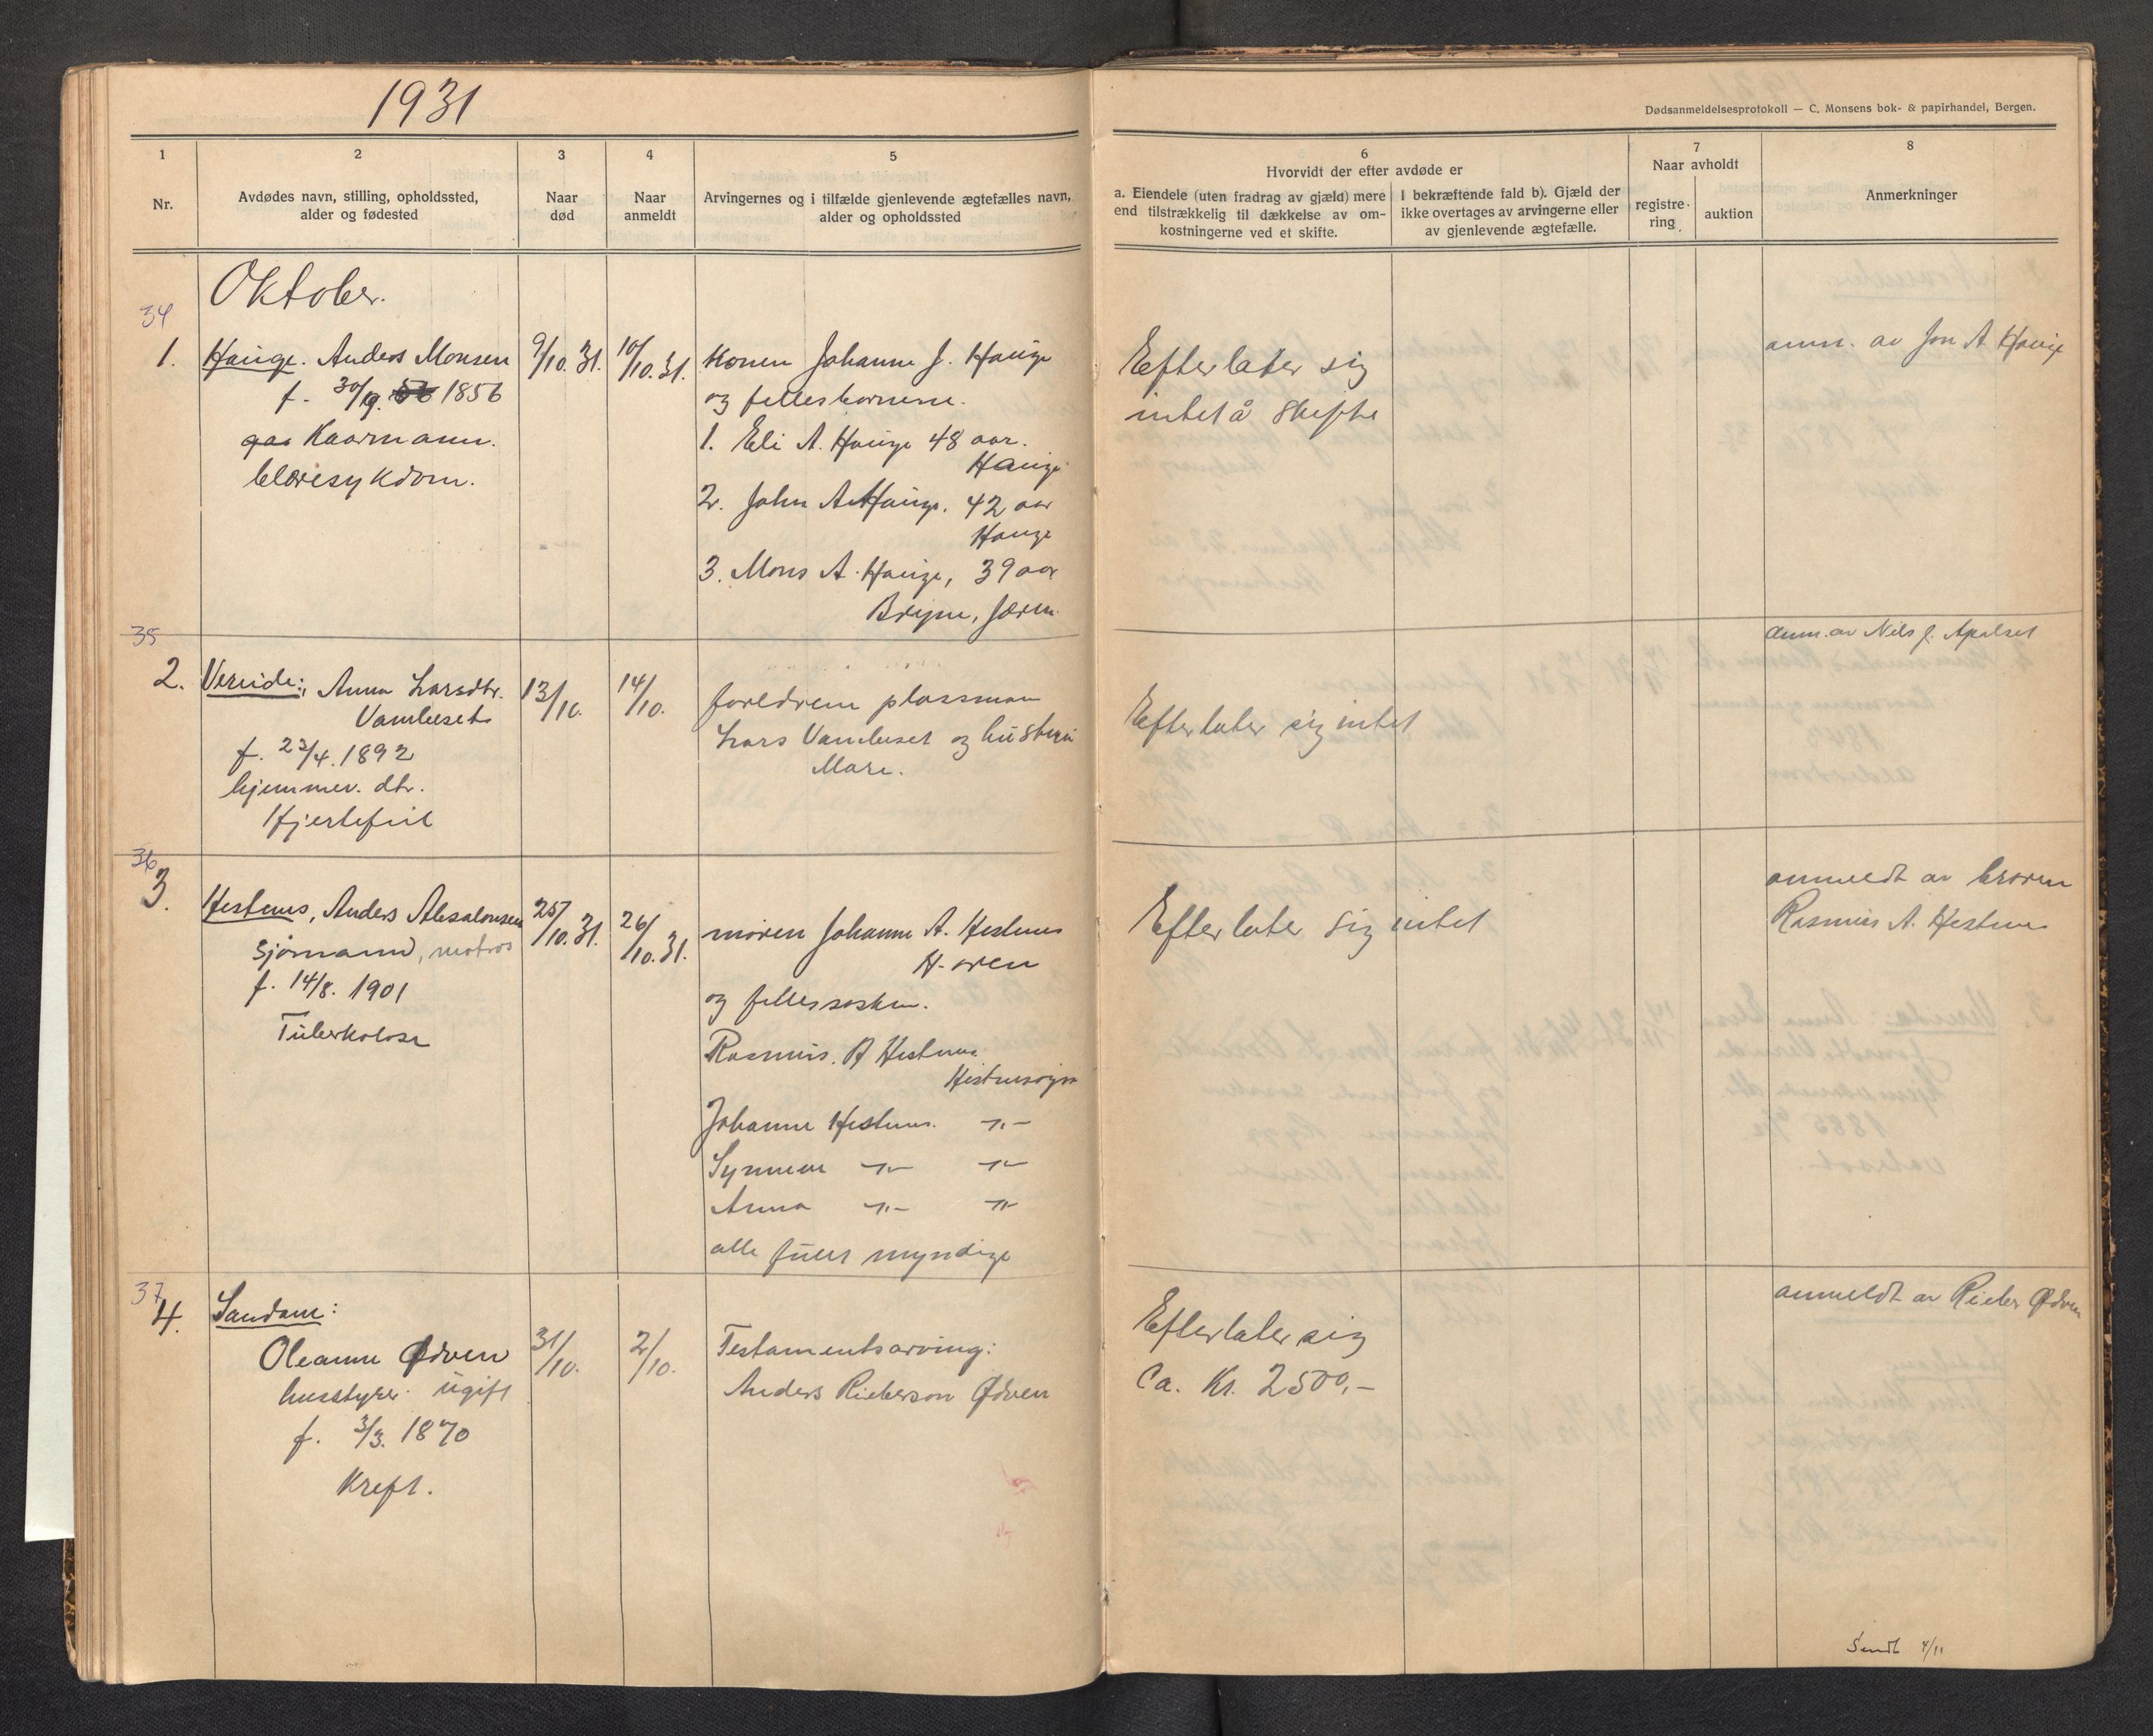 1931
Dødsanmeldelsesprotokoll — C. Monsens bok- & papirhandel, Bergen.
1
2
3
4
5
6
7
8
Nr.
Avdødes navn, stilling, opholdssted,
alder og fødested
Naar
død
Naar
anmeldt
Arvingernes og i tilfælde gjenlevende ægtefælles navn,
alder og opholdssted
Hvorvidt der efter avdøde er
a. Eiendele (uten fradrag av gjæld) mere
end tilstrækkelig til dækkelse av om-
kostningerne ved et skifte.
I bekræftende fald b). Gjæld der
ikke overtages av arvingerne eller
av gjenlevende ægtefælle.
Naar avholdt
registre-
ring
auktion
Anmerkninger
Oktober.
34
1.
Hauge. Anders Monsen
f. 30/9. 1856
Kaarmann.
blæresykdom.
9/10. 31.
10/10. 31.
Konen Johanne J. Hauge
og fellesbornene.
1. Eli A. Hauge 48 aar.
Hauge
2. John A Hauge. 42 aar
Hauge
3. Mons A. Hauge, 39 aar
Bryne, Jæren.
Efterlater sig
intet å skifte
anm. av Jon A Hauge
35
2.
Vereide:, Anna Larsdtr.
f. 23/4. 1892
hjemmev. dtr.
Hjertefeil
13/10.
14/10.
foreldrene plassman
Lars og hustru
Mari.
Efterlater sig intet
anm. av Nils J. Apalset
36
3.
Hestenes, Anders Absalonsen
Sjømann, matros
f. 14/8. 1901
Tuberkolose
25/10. 31.
26/10. 31.
moren Johanne A. Hestenes
og fellessøsken.
Rasmus. A Hestenes
Johanne Hestenes. -"-
Synneve -"- -"-
Anna -"- -"-
alle fullt myndige
Efterlater sig intet
anmeldt av broren
Rasmus A. Hestenes
37
4.
Sandane:
Oleanne Ødven
husstyrer. ugift
f. 3/3. 1870
Kreft.
31/10.
2/10.
Testamentsarving:
Anders Rieberson Ødven
Efterlater sig
Ca. Kr. 2500,-
anmeldt av Rieber Ødven
Sendt 4/11